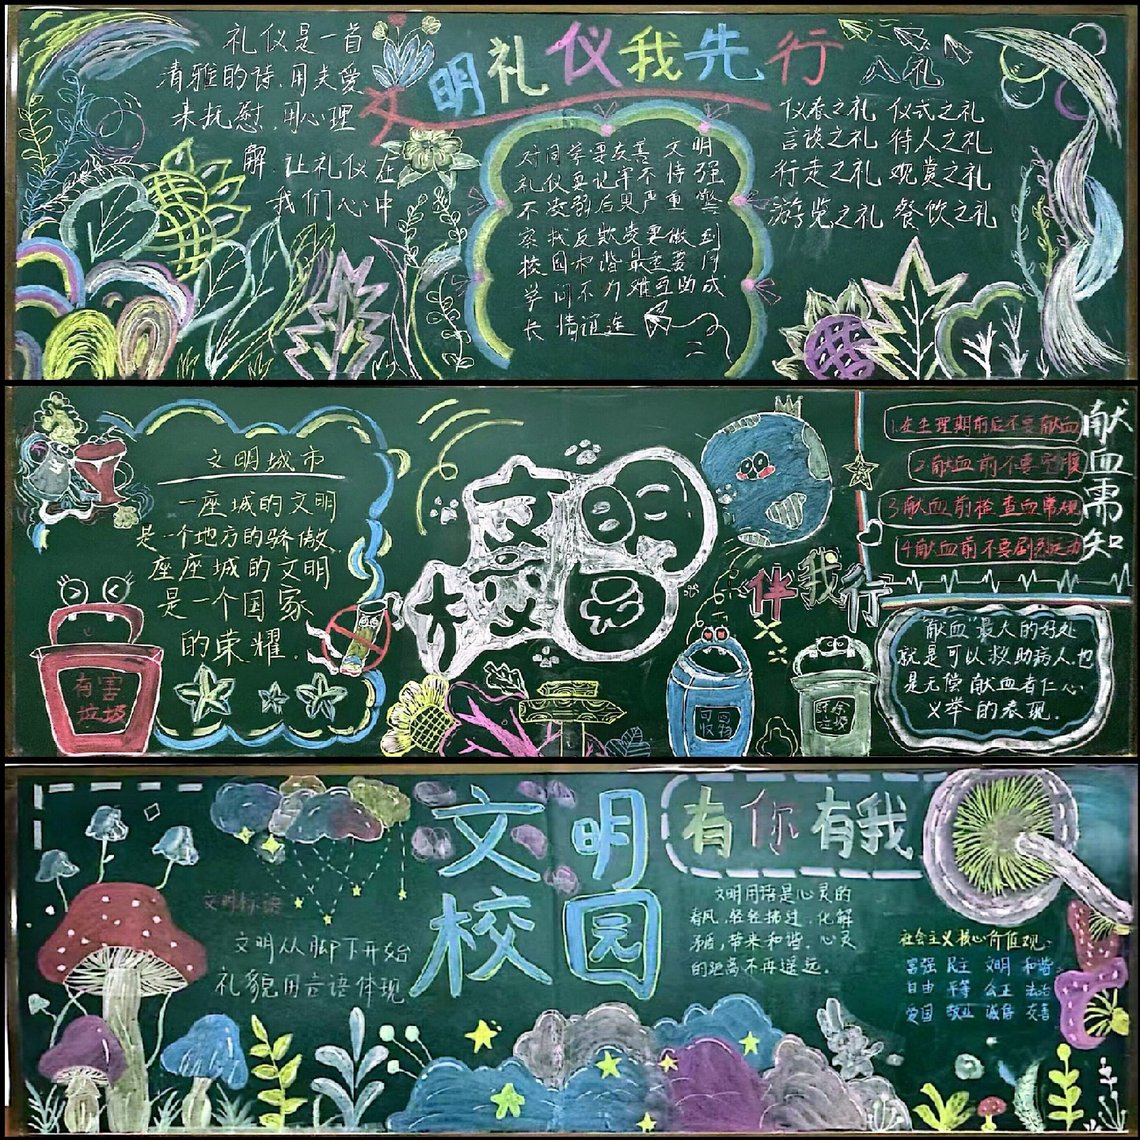 文明礼仪我先行
礼仪是一首
清雅的诗.用关爱
来抚慰.用心理
解.让礼仪在
我们心中
对同学要友善 文明
礼仪要记牢不恃强
不凌弱后果严重警
察找反欺凌要做到
校园和谐最重要同
学间不力难互助成
长 情谊连
八礼
仪表之礼 仪式之礼
言谈之礼 待人之礼
行走之礼 观赏之礼
游览之礼 餐饮之礼
文明城市
一座城的文明
是一个地方的骄傲.
座座城的文明
是一个国家
的荣耀.
有害
垃圾
文明
校园
伴我行
可回
收物
厨余
垃圾
献血需知
1.在生理期前后不要献血
2献血前不要空腹
3献血前检查血常规
4献血前不要剧烈运动
"献血"最大的好处
就是可以救助病人.也
是无偿献血者仁心
义举的表现.
文明
校园
有你有我
文明标语
文明从脚下开始
礼貌用言语体现
文明用语是心灵的
春风,轻轻拂过,化解
矛盾,带来和谐.心灵
的距离不再遥远.
社会主义核心价值观:
富强 民主 文明 和谐
自由 平等 公正 法治
爱国 敬业 诚信 友善